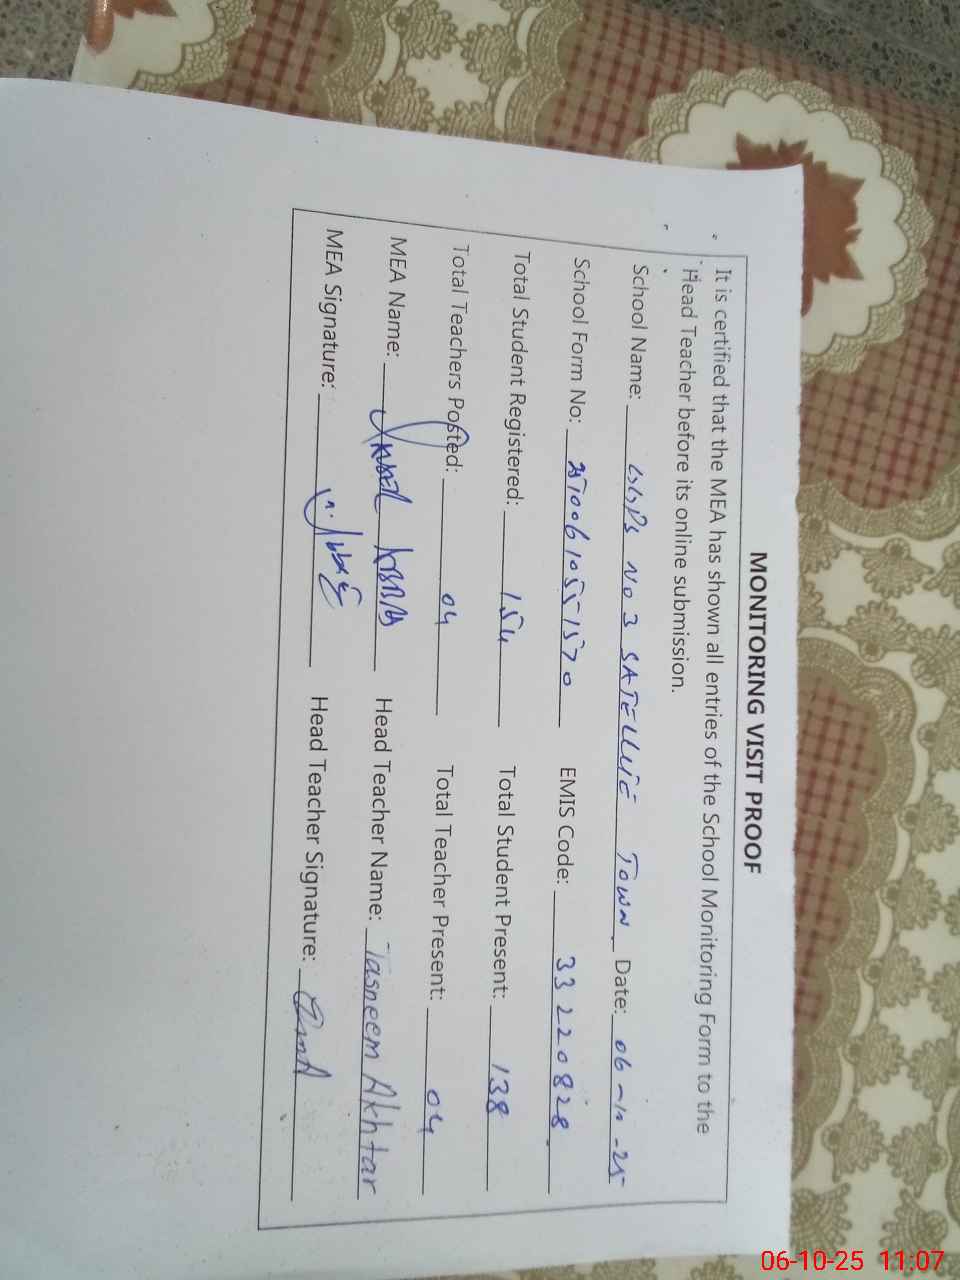 MONITORING VISIT PROOF
It is certified that the MEA has shown all entries of the School Monitoring Form to the
Head Teacher before its online submission.
School Name: GGPS NO 3 SATELLITE TOWN Date: 06-10-25
School Form No: EMIS Code: 33220828
Total Student Registered: 154 Total Student Present: 138
Total Teachers Posted: 04 Total Teacher Present: 04
MEA Name: Head Teacher Name: Tasneem Akhtar
MEA Signature: Head Teacher Signature:
06-10-25 11:07